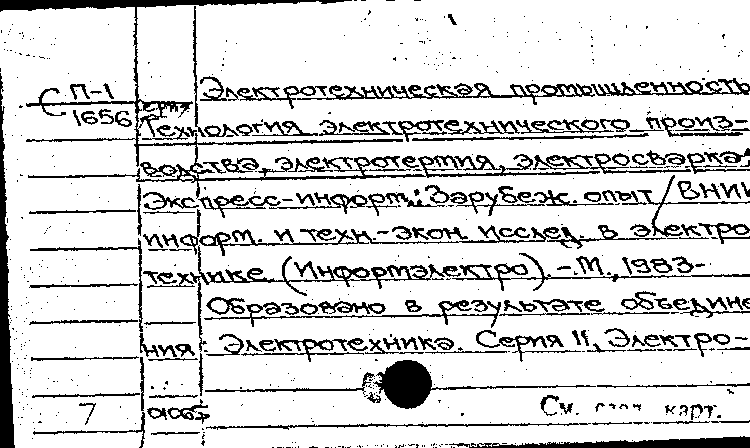 С П-1 Электротехническая промышленность
1656 Серия
Технология электротехнического произ-
водства, электротермия, электросварка:
Экспресс-информ.: Зарубеж. опыт / ВНИИ
информ. и техн.-экон. исслед. в электро
технике (Информэлектро). - М., 1983-
Образовано в результате объедине
ния: Электротехника. Серия 11, Электро-
7
См. карт.